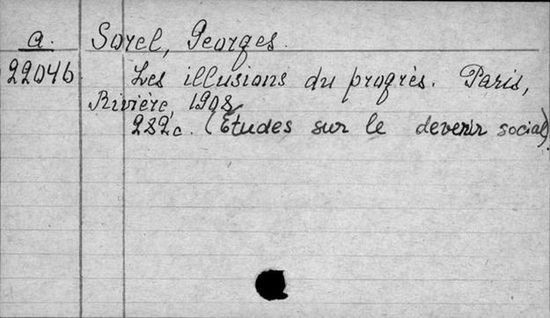 a. Sorel, Georges.
22046 Les illusions du progrès. Paris,
Rivière, 1908
282 c. (Études sur le devenir social).